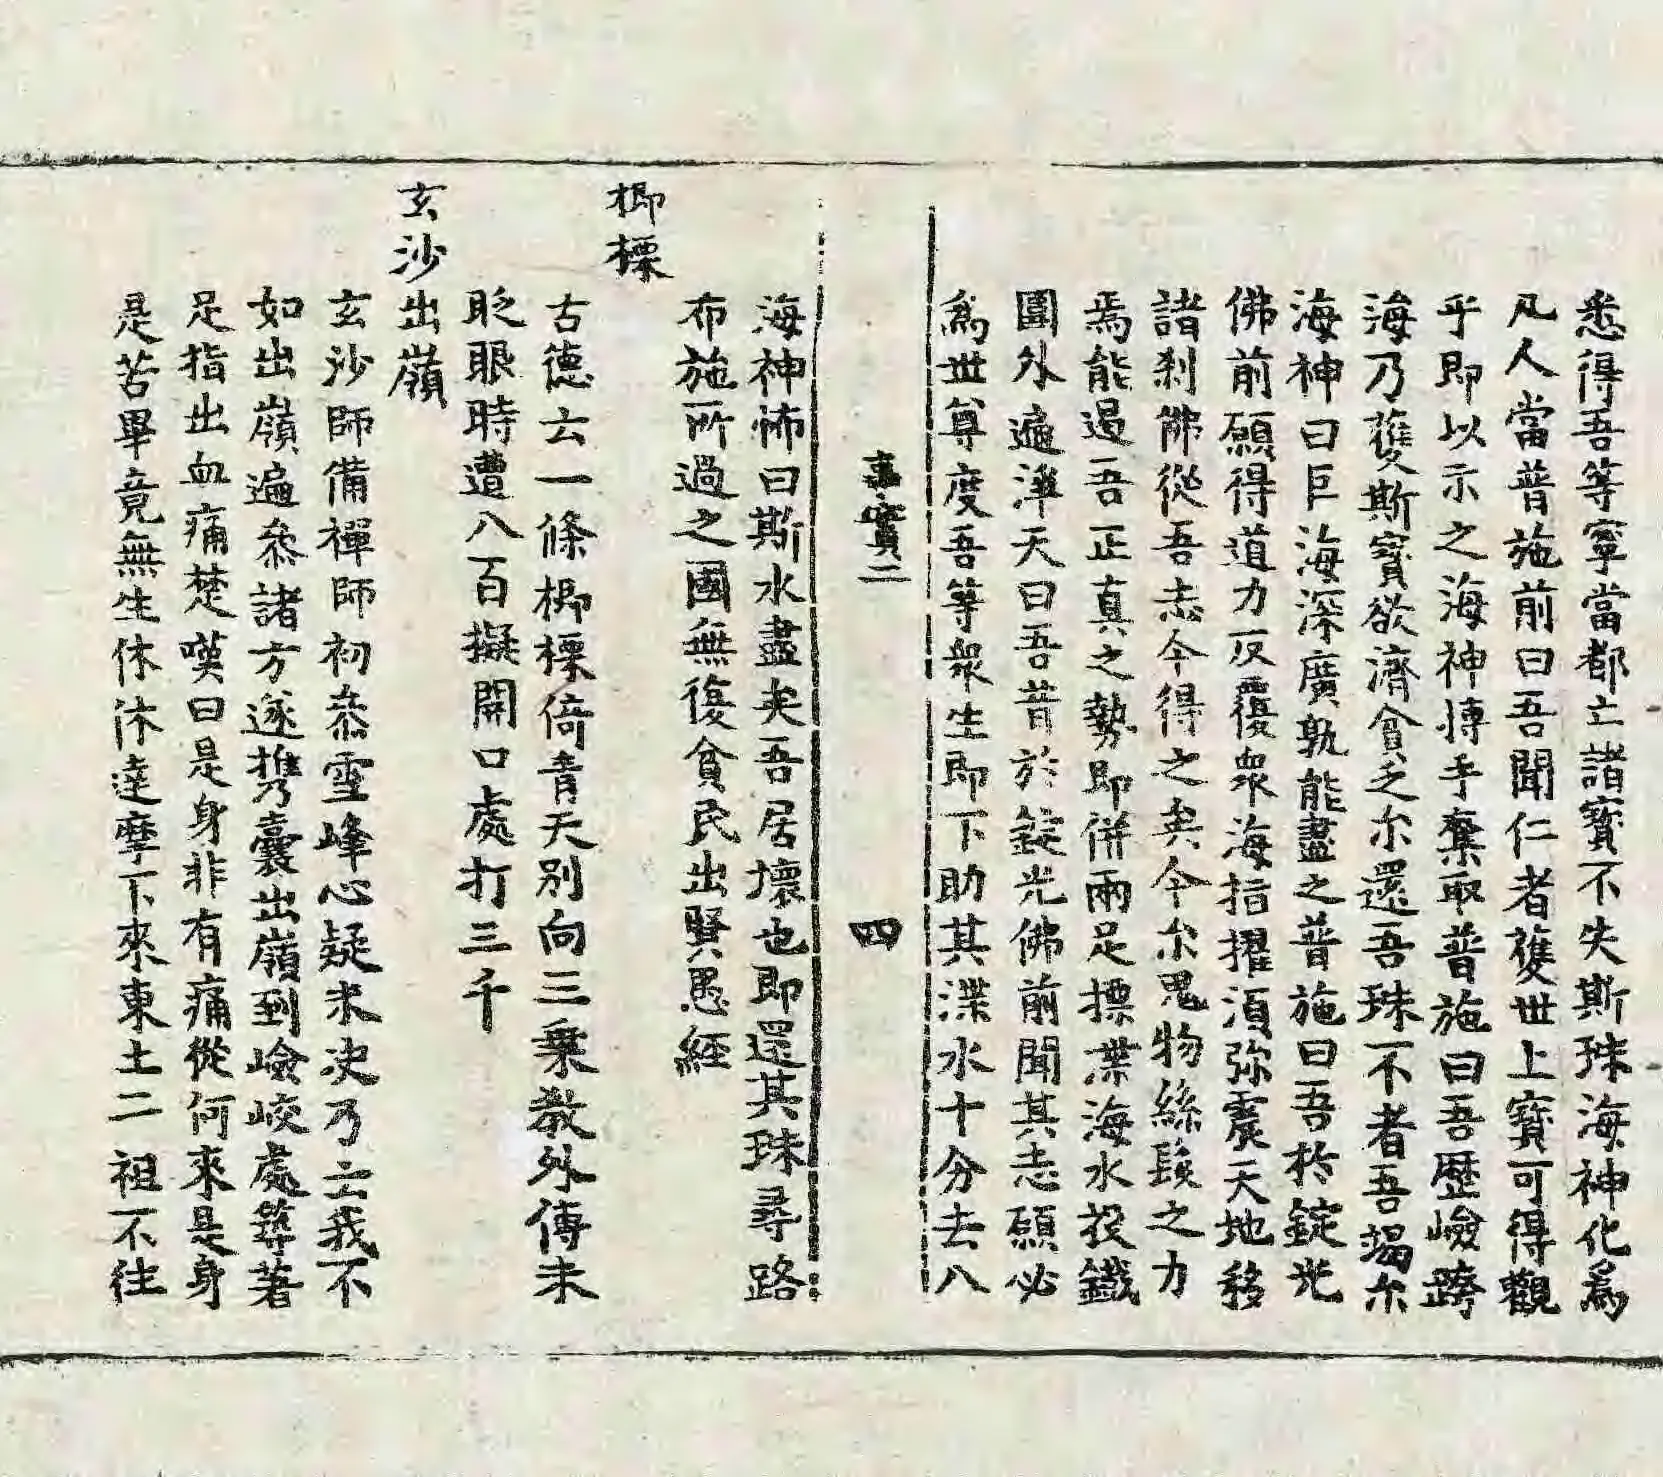 悉得吾等寧當都亡諸寳不失斯珠海神化爲
凡人當普施前曰吾聞仁者獲世上寳可得觀
乎即以示之海神慱乎奪取普施曰吾歷嶮跨
海乃獲斯寳欲濟貧乏尒還吾珠不者吾竭尒
海神曰巨海深廣孰能盡之普施曰吾於錠光
佛前願得道力反覆衆海指擢須弥震天地移
諸刹佛從吾志今得之矣今尒鬼物絲髮之力
焉能遏吾正真之勢即併兩足摽渫海水投鐵
圍外遍淨天曰吾昔於錠光佛前聞其志願必
爲世尊度吾等衆生即下助其渫水十分去八
事實二
四
海神怖曰斯水盡矣吾居壞也即還其珠尋路
布施所過之國無復貧民出賢愚経
楖㮚
古德云一條楖㮚倚青天別向三乗教外傳未
眨眼時遭八百擬開口處打三千
玄沙出嶺
玄沙師備禪師初叅雪峰心疑未决乃云我不
如出嶺遍叅諸方遂携囊出嶺到嶮峻處築著
足指出血痛楚嘆曰是身非有痛從何來是身
是苦畢竟無生休休達摩不來東土二祖不往